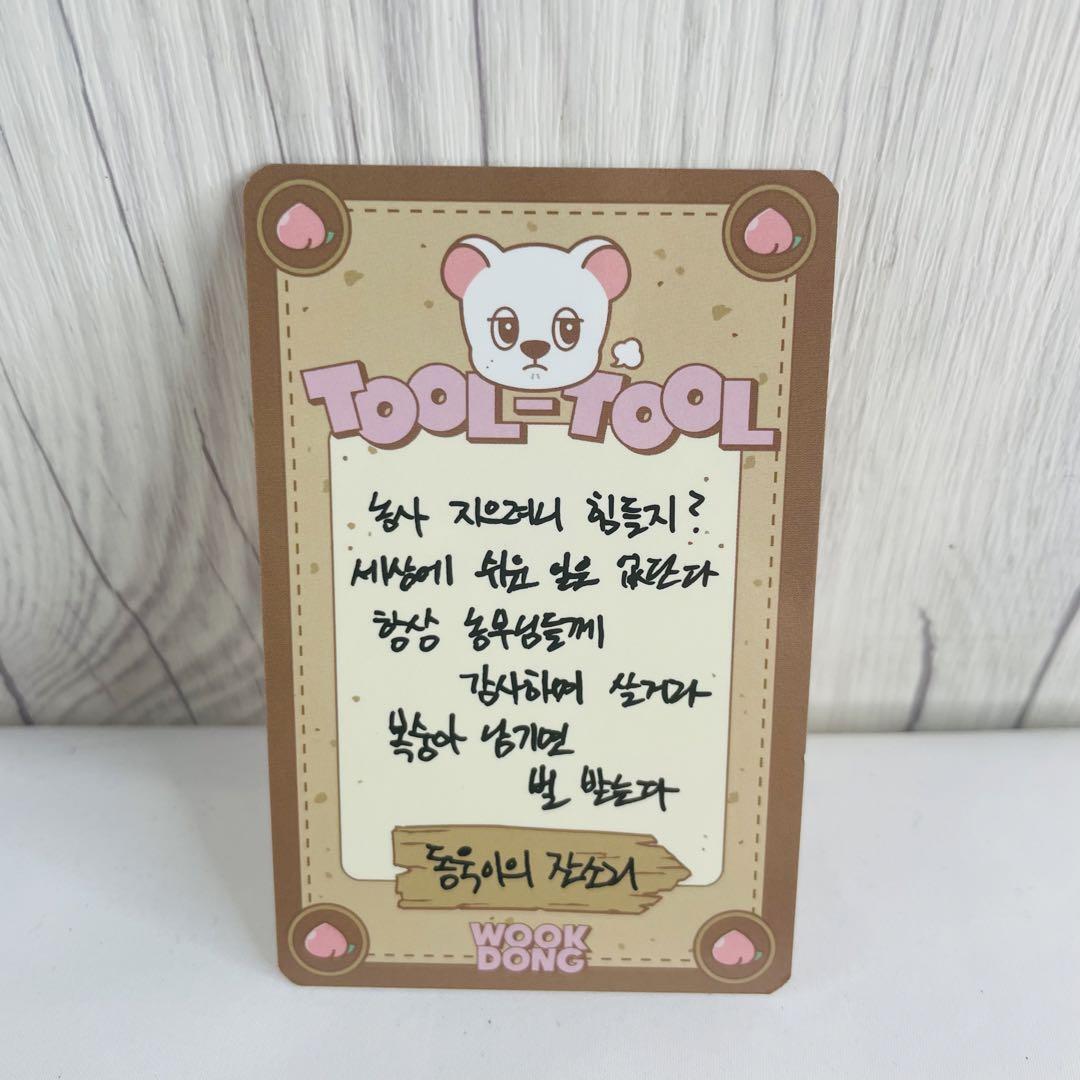 TOOL-TOOL
농사 지으려니 힘들지?
세상에 쉬운 일은 없단다
항상 농부님들께
감사하며 살거라
복숭아 남기면
벌 받는다
동욱아의 잔소리
WOOK
DONG